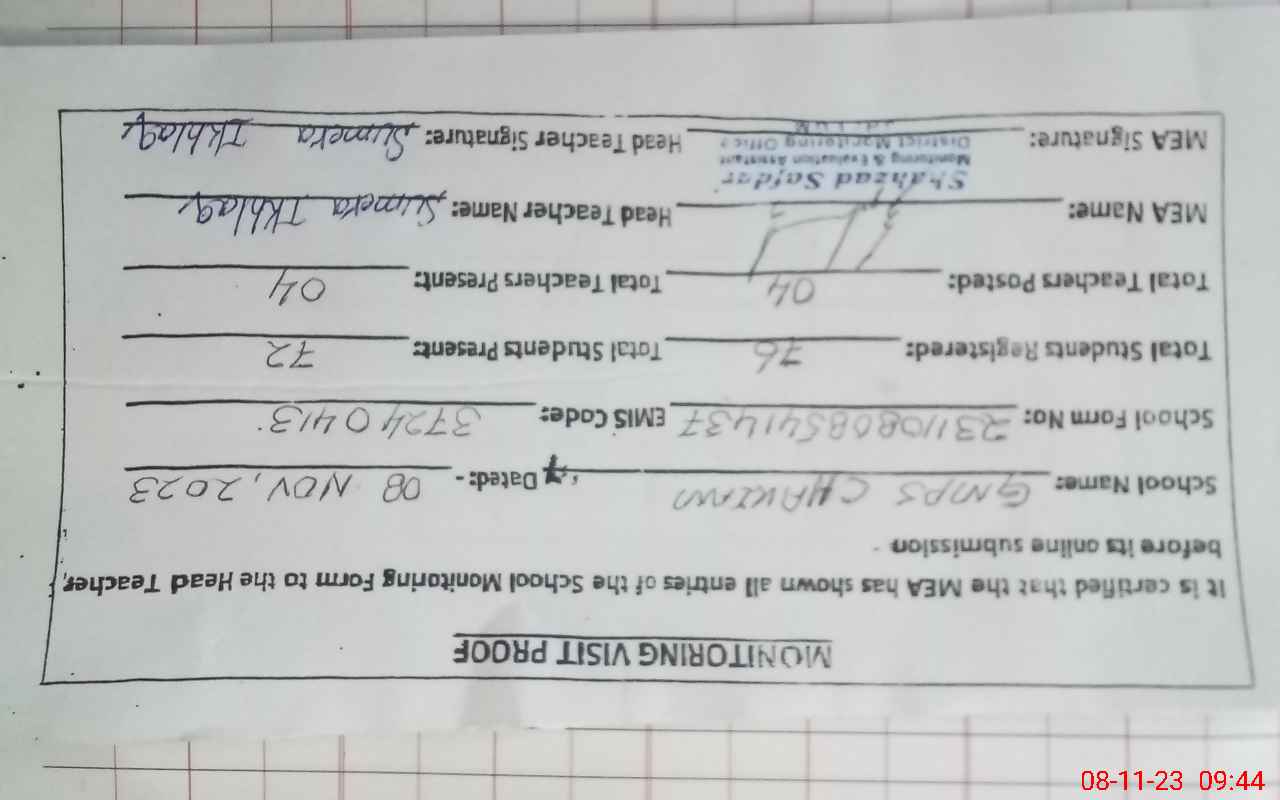 MONITORING VISIT PROOF
It is certified that the MEA has shown all entries of the School Monitoring Form to the Head Teacher,
before its online submission
School Name: GMPS CHAKIAN Dated: - 08 NOV, 2023
School Form No: 23110808541437 EMIS Code: 37240413
Total Students Registered: 76 Total Students Present: 72
Total Teachers Posted: 04 Total Teachers Present: 04
MEA Name: Head Teacher Name: Sumera Ikhlaq
Shahzad Safdar
Monitoring & Evaluation Assistant
District Monitoring Office
MEA Signature: Head Teacher Signature: Sumera Ikhlaq
08-11-23 09:44